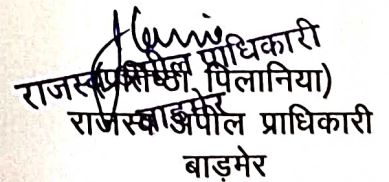 राजस्व अपील प्राधिकारी
(प्रतिष्ठा पिलानिया)
बाड़मेर
राजस्व अपील प्राधिकारी
बाड़मेर